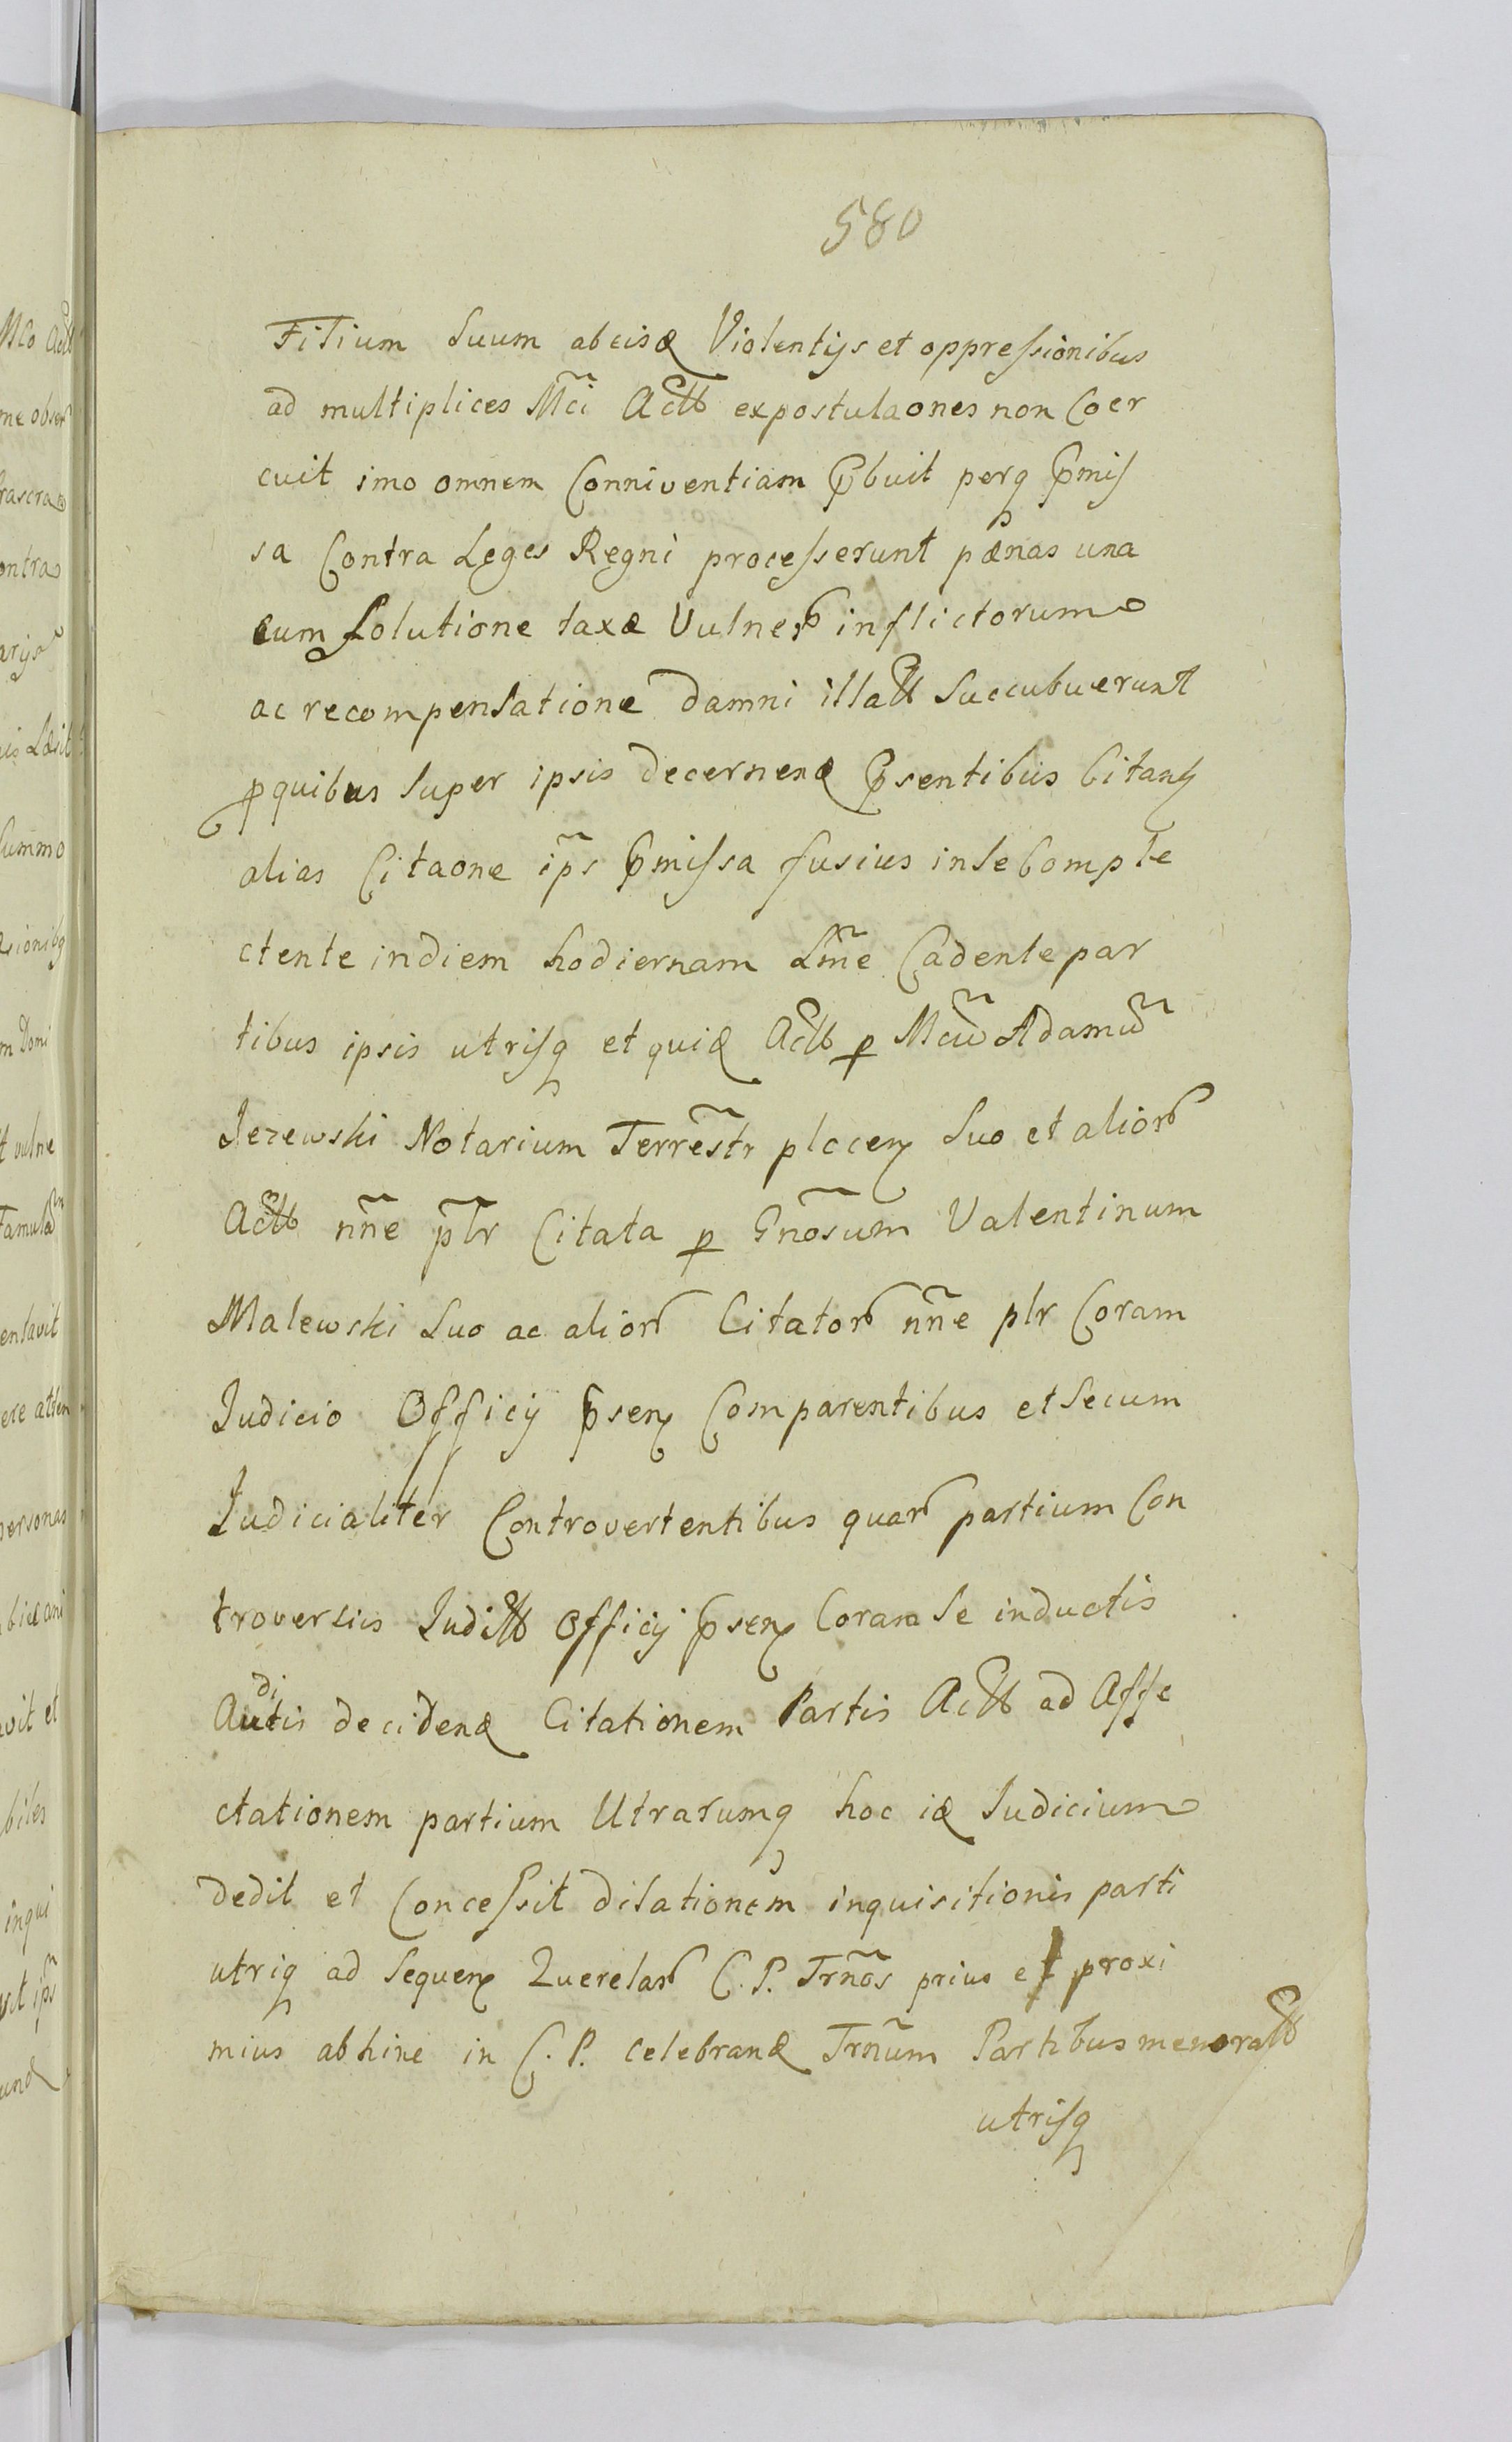 580
Filium suum ab eisd Violentijs et oppressionibus
ad multiplices Mci Actt expostulaones non Coer
cuit imo omnem Conniventiam pbuit perq pmis
sa Contra Leges Regni processerunt pænas una
cum solutione taxæ Vulner inflictorum
ac recompensatione damni illatt succubuerunt
p quibus super ipsis decernend psentibus Citanς
alias Citaone ips pmissa fusius in se Comple
ctente in diem hodiernam Lme Cadente par
tibus ipsis utrisq et quid Actt p Mcum Adamum
Jezewski Notarium Terrestr plocen suo et alior
Actt nne plr Citata p Gnosum Valentinum
Malewski suo ac alior Citator nne plr Coram
Judicio Officij psen Comparentibus et secum
Judicialiter Controvertentibus quar partium Con
troversiis Juditt Officij psen Coram se inductis
Auditis decidend Citationem Partis Actt ad Affe
ctationem partium Utrarumq hoc id Judicium
dedit et Concessit dilationem inquisitionis parti
utriq ad sequen Querelar C. P. Trnos prius et proxi
mius abhinc in C. P. celebrand Trnum Partibus memoratt
utrisq
Mco Actt
personas
vit et
biles
inqui